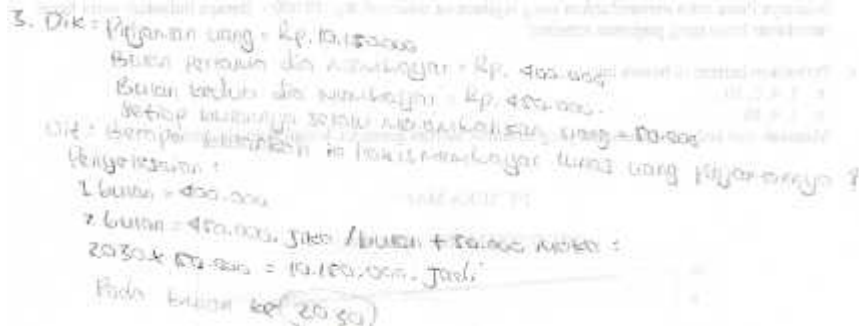 3. Dik = Pinjaman uang = Rp. 10.150.000
Bulan pertama dia membayar = Rp. 400.000
Bulan kedua dia membayar = Rp. 450.000.
Setiap bulannya selalu menaikkan uang = 50.000
Dit = ia harus membayar lunas uang pinjamannya ?
Penyelesaian :
1 bulan = 400.000
2 bulan = 450.000. Jika /bulan + 50.000 maka :
2030 x 50.000 = 10.150.000. Jadi
Pada bulan ke (2030)